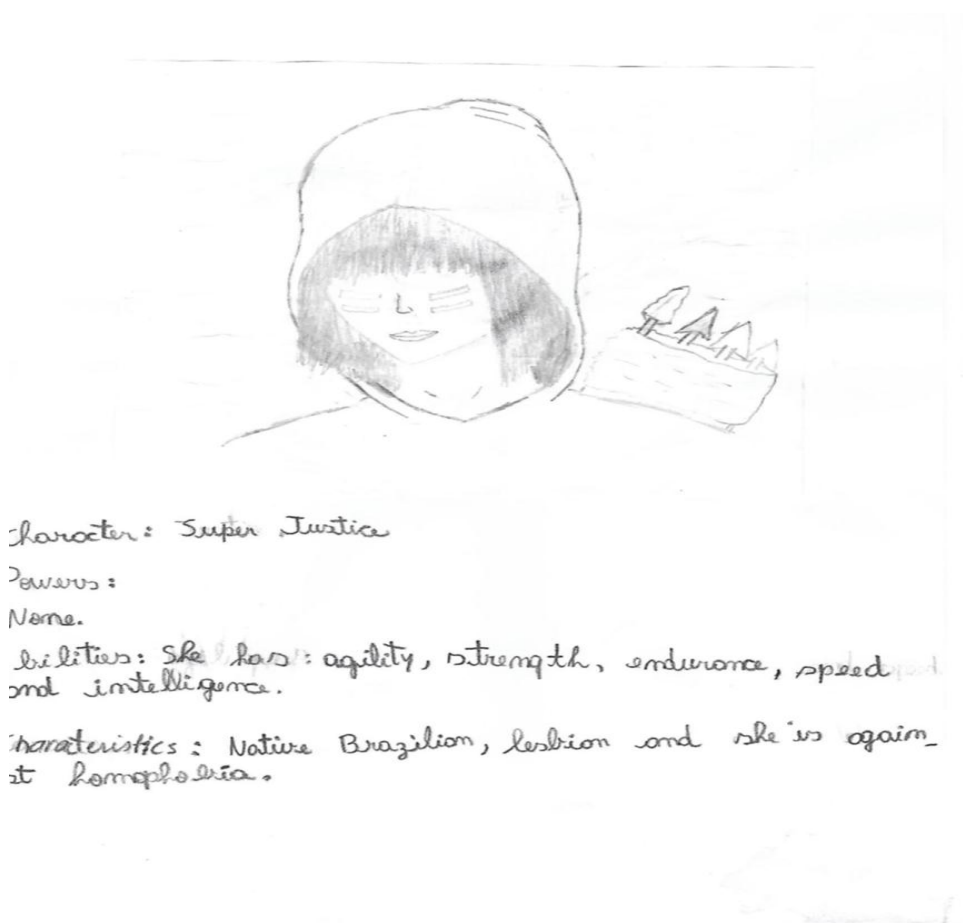 Character: Super Justice
Powers:
None.
bilities: She has: agility, strength, endurance, speed
and intelligence.
Charateristics: Native Brazilian, lesbian and she is again_
st homophobia.